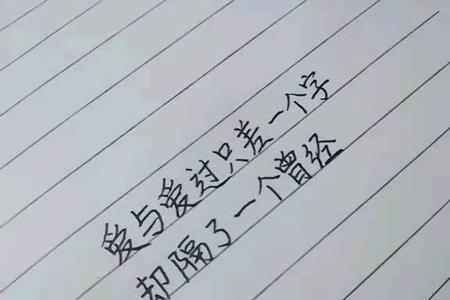 爱与爱过只差一个字
却隔了一个曾经